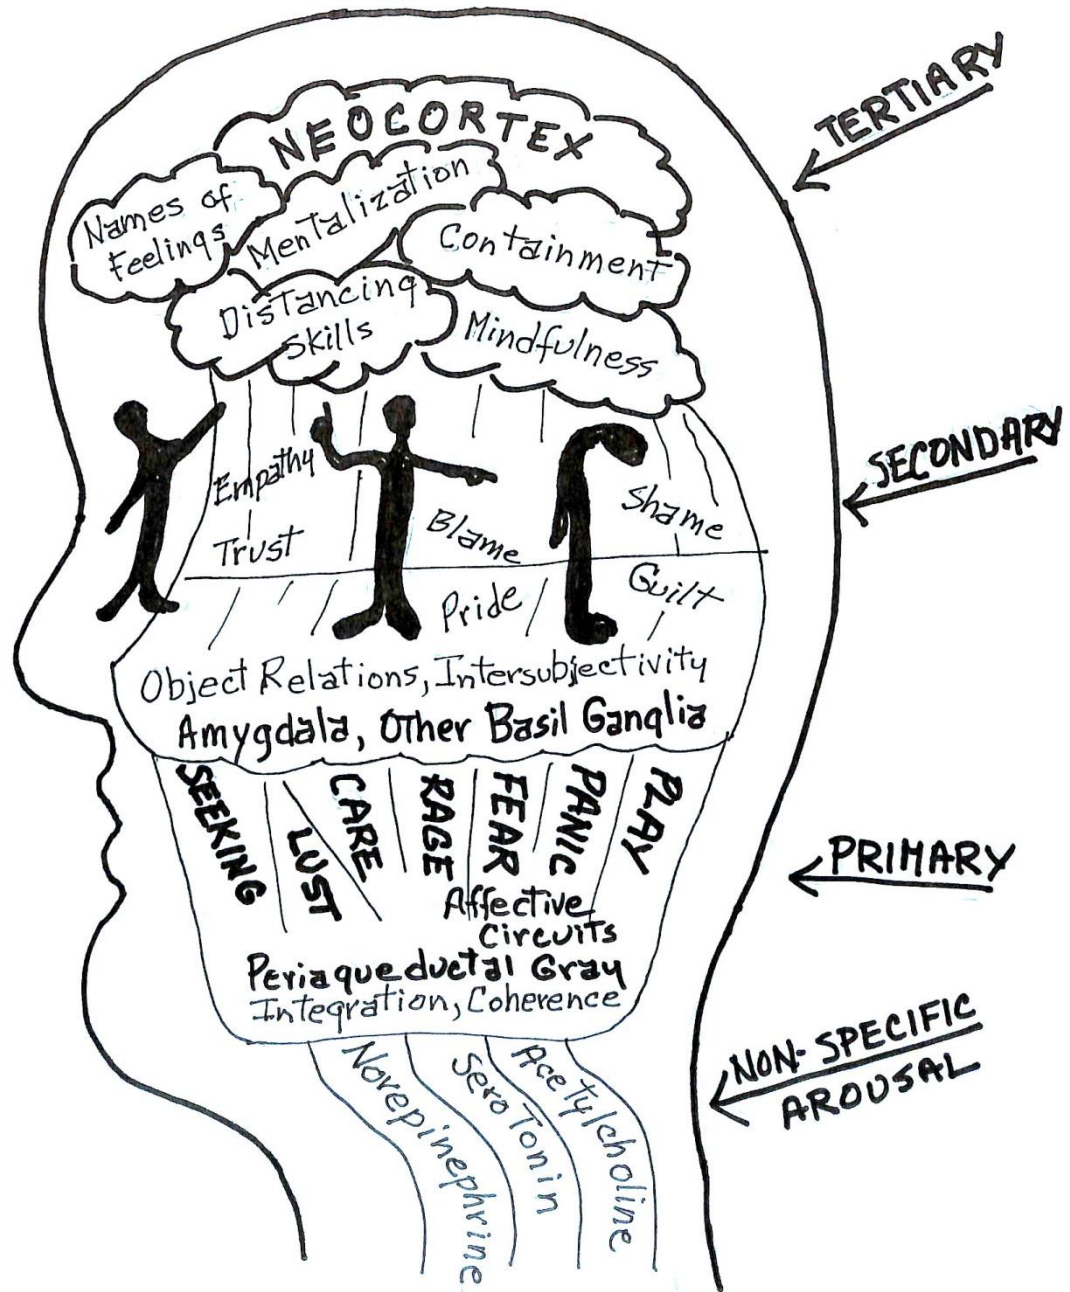 TERTIARY
NEOCORTEX
Names of
Feelings
Mentalization
Containment
Distancing
Skills
Mindfulness
SECONDARY
Empathy
Trust
Blame
Shame
Pride
Guilt
Object Relations, Intersubjectivity
Amygdala, Other Basil Ganglia
SEEKING
LUST
CARE
RAGE
FEAR
PANIC
PLAY
PRIMARY
Affective
Circuits
Periaqueductal Gray
Integration, Coherence
NON-SPECIFIC
AROUSAL
Norepinephrine
Serotonin
Acetylcholine